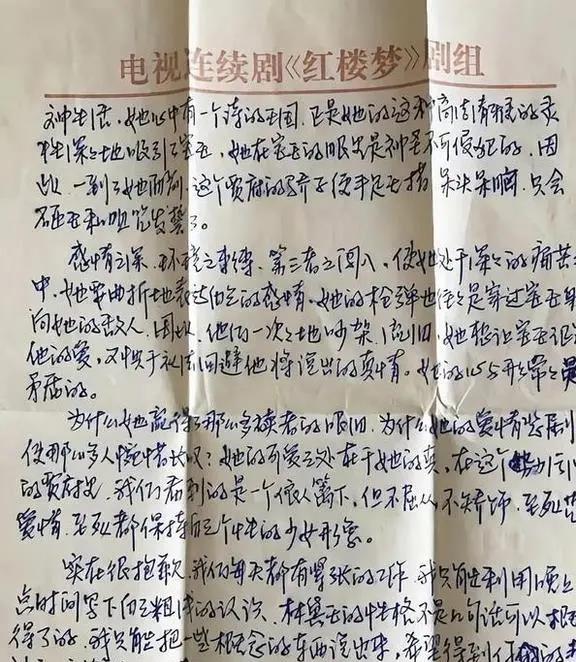 电视连续剧《红楼梦》剧组
神生活，她心中有一个诗的王国，正是她的这种高洁清雅的灵
性深深地吸引了宝玉，她在宝玉的眼里是神圣不可侵犯的，因
此，一到了她面前，这个贾府的骄子便手足无措，呆头呆脑，只会
发誓了。
感情之深，环境之束缚，第三者之闯入，使她处于深深的痛苦之
中，她要曲折地表达自己的感情，她的枪弹也往往是穿过宝玉身
向她的敌人，因此，他们一次次地吵架，流泪，她想让宝玉证
他的爱，又惧于礼法回避他将说出的真情。她的心与形常常是
矛盾的。
为什么她赢得了那么多读者的眼泪，为什么她的爱情悲剧
使那么多人惋惜长叹？她的可爱之处在于她的真，在这个
的贾府里，我们看到的是一个依人篱下，但不屈从，不矫饰，至死
爱情，至死都保持自己个性的少女形象。
实在很抱歉，我们每天都有紧张的工作，我只能利用晚上
点时间写下自己粗浅的认识，林黛玉的性格不是几句话可以概
得了的，我只能把一些概念的东西说出来，希望得到